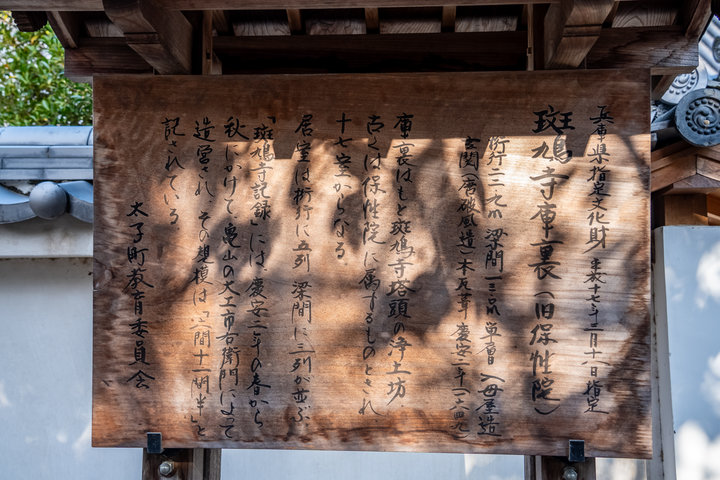 兵庫県指定文化財 平成十七年三月十八日指定
斑鳩寺庫裏（旧保性院）
桁行 梁間 単層 入母屋造
玄関（唐破風造）本瓦葺 慶安二年（一六四九）
庫裏はもと斑鳩寺塔頭の浄土坊
古くは保性院に属するものとされ
十七室からなる。
居室は桁行に五列 梁間に三列が並ぶ
「斑鳩寺記録」には慶安二年の春から
秋にかけて、亀山の大工市右衛門によって
造営され、その規模は「三間十一間半」と
記されている。
太子町教育委員会